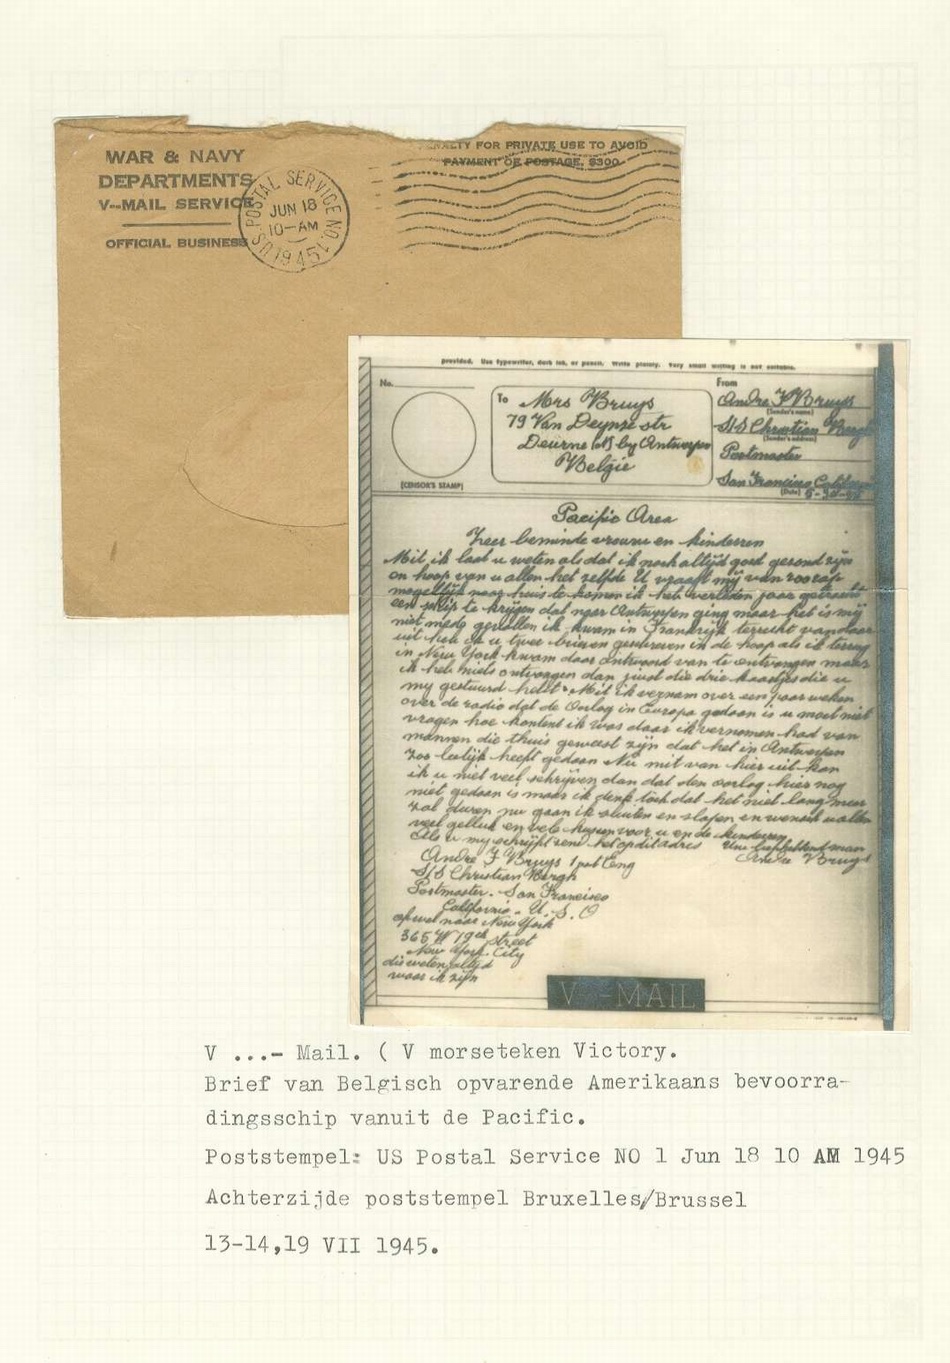 WAR & NAVY
DEPARTMENTS
V--MAIL SERVICE
OFFICIAL BUSINESS
U.S. POSTAL SERVICE NO. 1
JUN 18
10-AM
1945
PENALTY FOR PRIVATE USE TO AVOID
PAYMENT OF POSTAGE, $300
provided. Use typewriter, dark ink, or pencil. Write plainly. Very small writing is not suitable.
No.
(CENSOR'S STAMP)
To
Mrs Bruys
79 Van Deynse str
Deurne (N) by Antwerpen
Belgie
From
Andre F Bruys
(Sender's name)
S/S Christian Bergh
(Sender's address)
Postmaster
San Francisco California
(Date)
Pacific Area
Zeer beminde vrouw en kinderren
Mit ik laat u weten als dat ik noch altijd goed gezond zijn
en hoop van u allen het zelfde U vraagt mij van zoo rap
mogelijk naar huis te komen ik heb verleden jaar getracht
een schip te krijgen dat naar Antwerpen ging maar het is mij
niet mede gevallen ik kwam in Frankrijk terecht van daar
uit heb ik u twee brieven geschreven in de hoop als ik terug
in New York kwam daar antwoord van te ontvangen maar
ik heb niets ontvangen dan juist die drie kaartjes die u
my gestuurd hebt. Mit ik vernam over een paar weken
over de radio dat de Oorlog in Europa gedaan is u moet niet
vragen hoe kontent ik was daar ik vernomen had van
mannen die thuis geweest zijn dat het in Antwerpen
zoo leelijk heeft gedaan Nu mit van hier uit kan
ik u niet veel schrijven dan dat den oorlog hier nog
niet gedaan is maar ik denk toch dat het niet lang meer
zal duren nu gaan ik sluiten en slapen en wensch u allen
veel geluk en vele kussen voor u en de kinderen
Als u my schrijft zend het op dit adres
Uw liefhebbend man
Andre Bruys
Andre F Bruys 1 pot Eng
S/S Christian Bergh
Postmaster. San Francisco
California. U. S. A
ofwel naar New York
365 W 19th street
New York City
die weten altijd
waar ik zijn
V···-MAIL
V ...- Mail. ( V morseteken Victory.
Brief van Belgisch opvarende Amerikaans bevoorra-
dingsschip vanuit de Pacific.
Poststempel: US Postal Service NO 1 Jun 18 10 AM 1945
Achterzijde poststempel Bruxelles/Brussel
13-14,19 VII 1945.